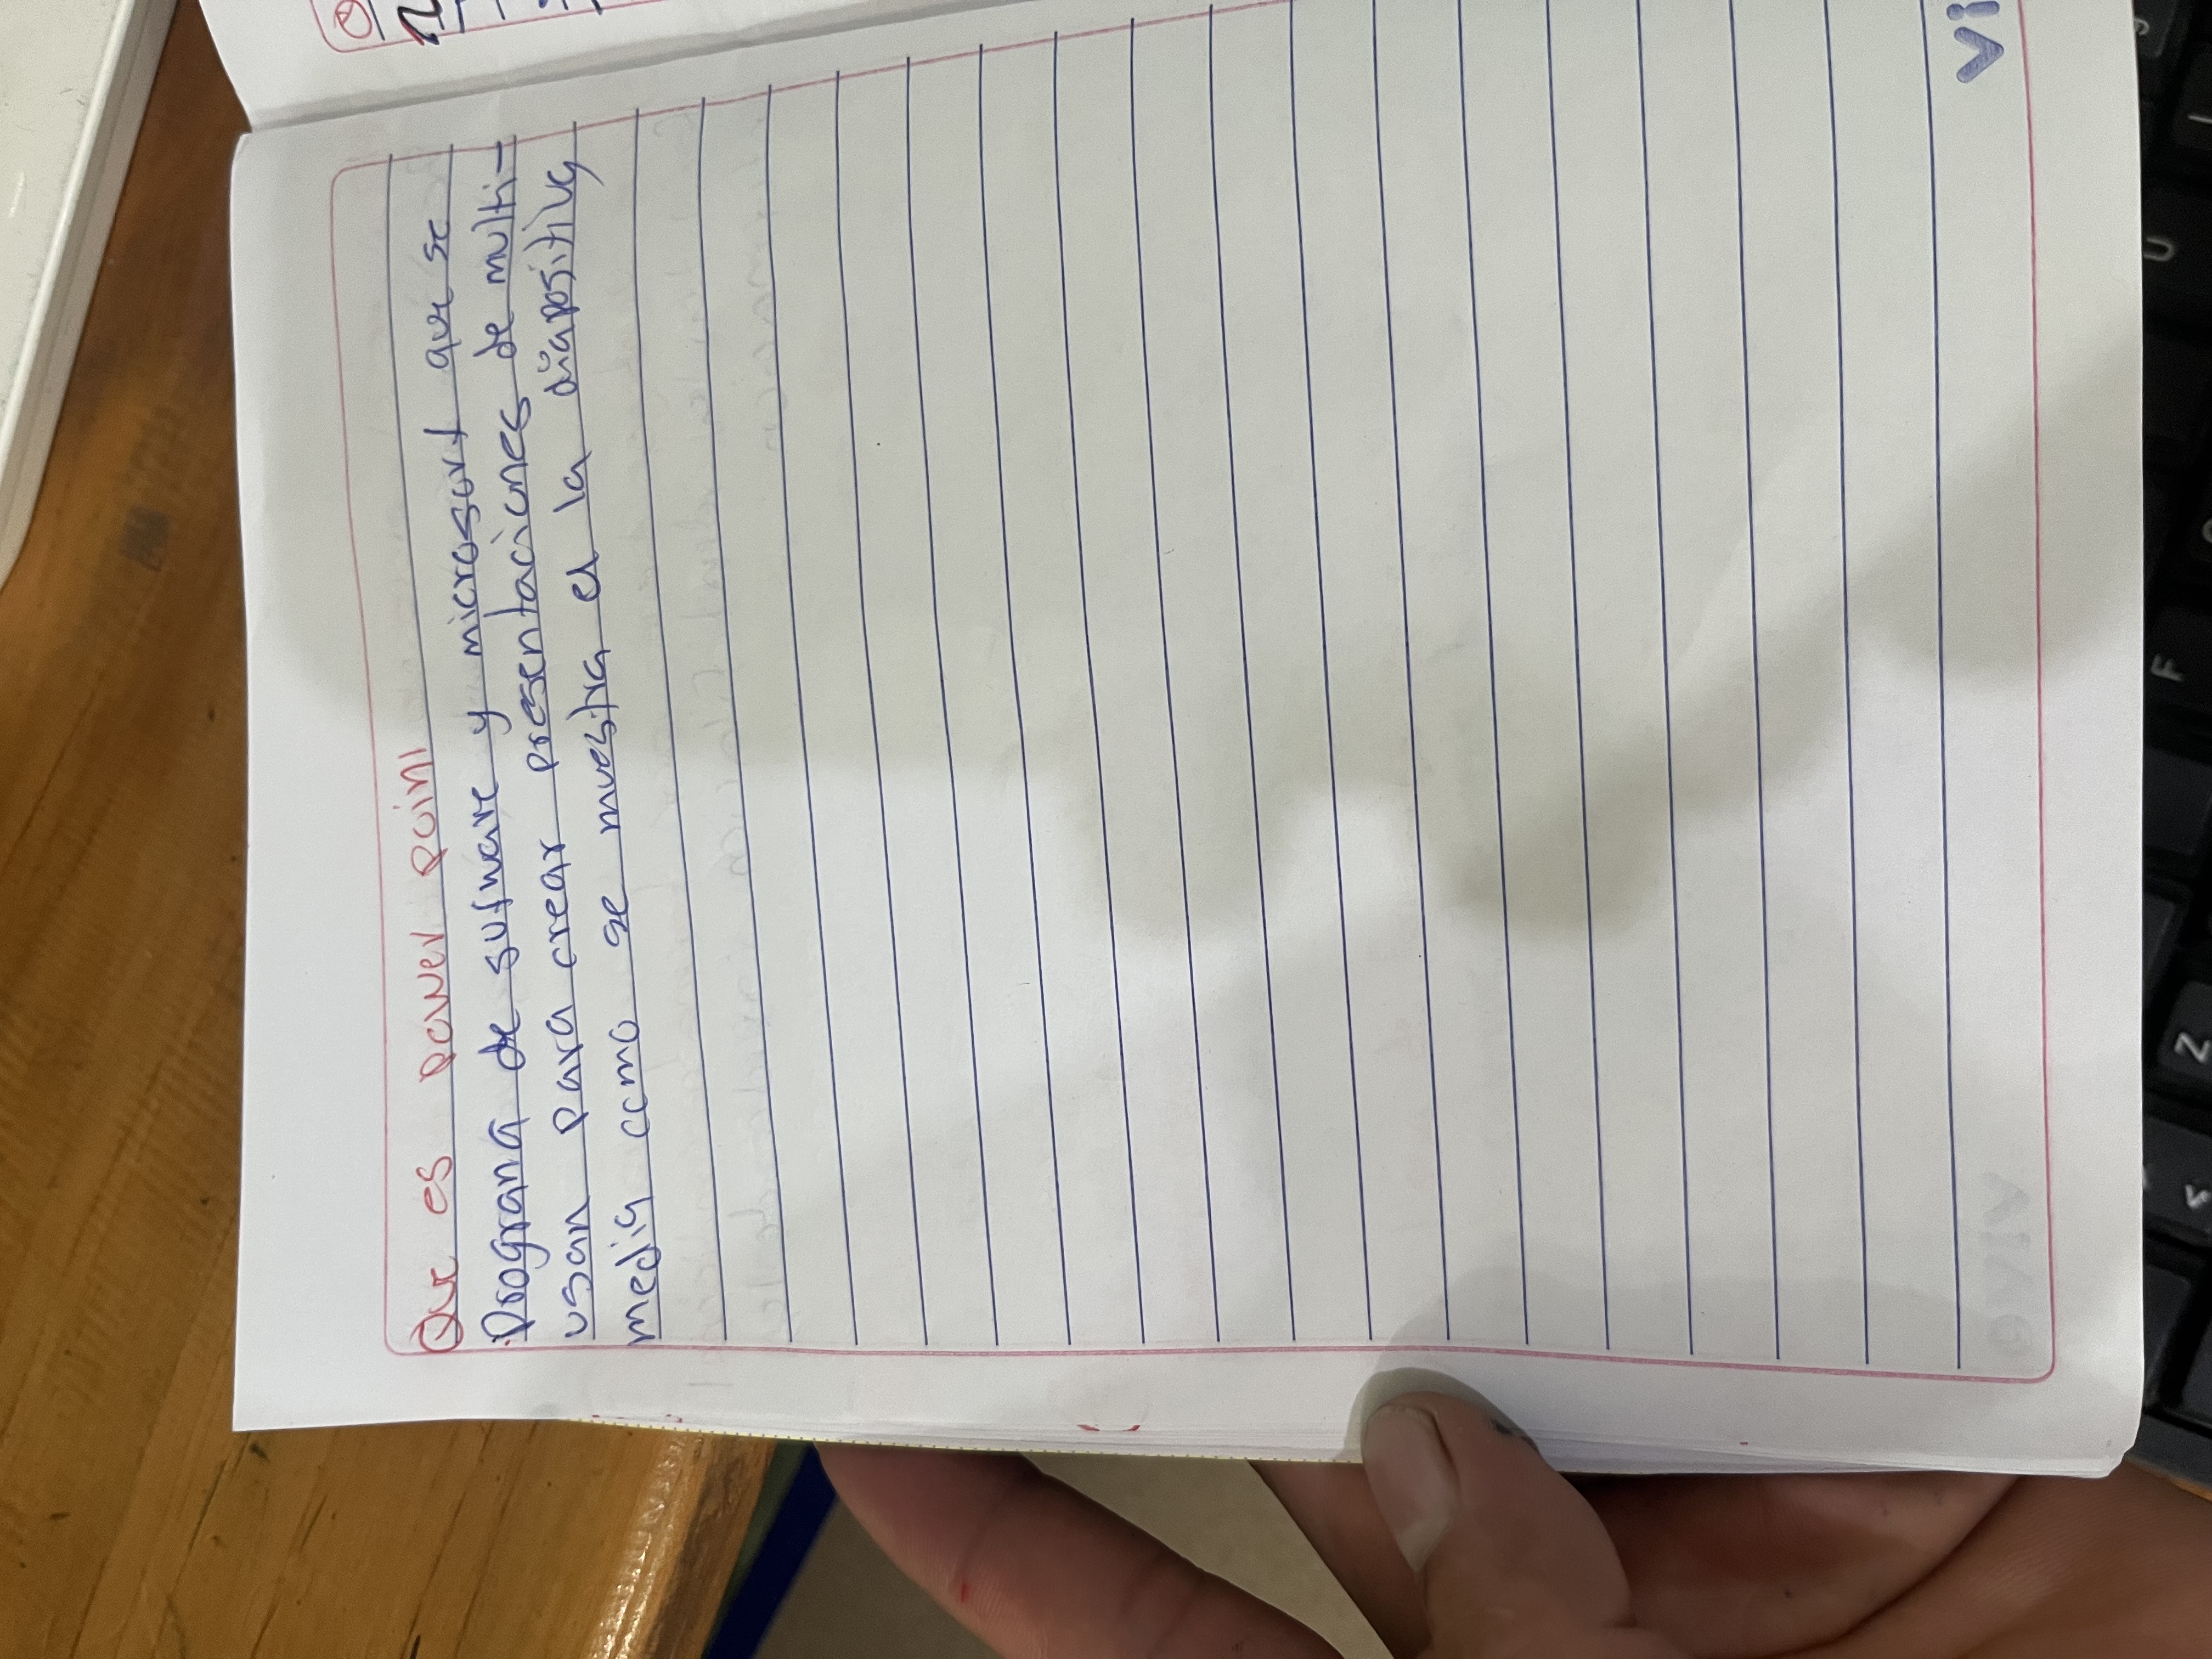 Que es power point
Programa de sufware y microsouf que se
usan para crear presentaciones de multi-
media como se muestra el la diapositiva
Vi